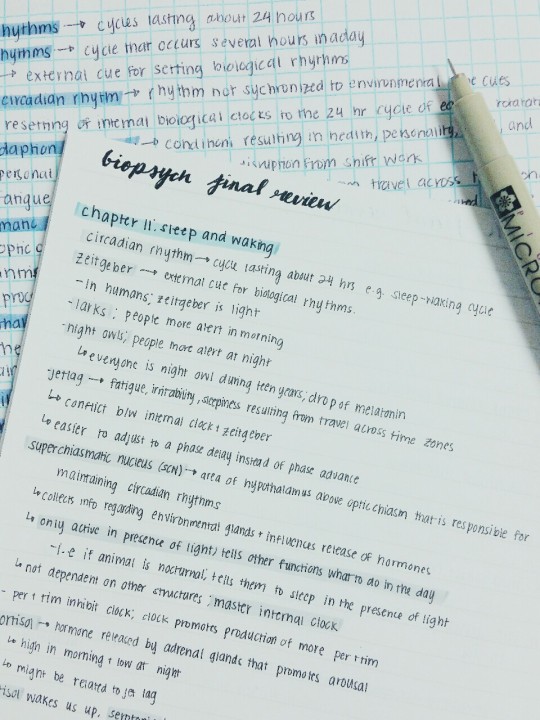 hythms → cycles lasting about 24 hours
hymms → cycle that occurs several hours in a day
→ external cue for setting biological rhythms
circadian rhytm → rhythm not sychronized to environmental cues
resetting of internal biological clocks to the 24 hr cycle of
→ condition resulting in health, personality, and
disruption from shift work
personal travel across
angue
manc
optic
proc
MICRO
biopsych final review
chapter 11: sleep and waking
circadian rhythm → cycle lasting about 24 hrs e.g. sleep-waking cycle
zeitgeber → external cue for biological rhythms.
- in humans; zeitgeber is light
- larks ; people more alert in morning
- night owls; people more alert at night
↳ everyone is night owl during teen years; drop of melatonin
jetlag → fatigue, irritability, sleepiness resulting from travel across time zones
↳ conflict b/w internal clock + zeitgeber
↳ easier to adjust to a phase delay instead of phase advance
superchiasmatic nucleus (SCN) → area of hypothalamus above optic chiasm that is responsible for
maintaining circadian rhythms
↳ collects info regarding environmental glands + influences release of hormones
↳ only active in presence of light; tells other functions what to do in the day
- i.e if animal is nocturnal; tells them to sleep in the presence of light
↳ not dependent on other structures ; master internal clock
- per + tim inhibit clock; clock promotes production of more per + tim
ortisol → hormone released by adrenal glands that promotes arousal
↳ high in morning + low at night
↳ might be related to jet lag
tisol wakes us up,